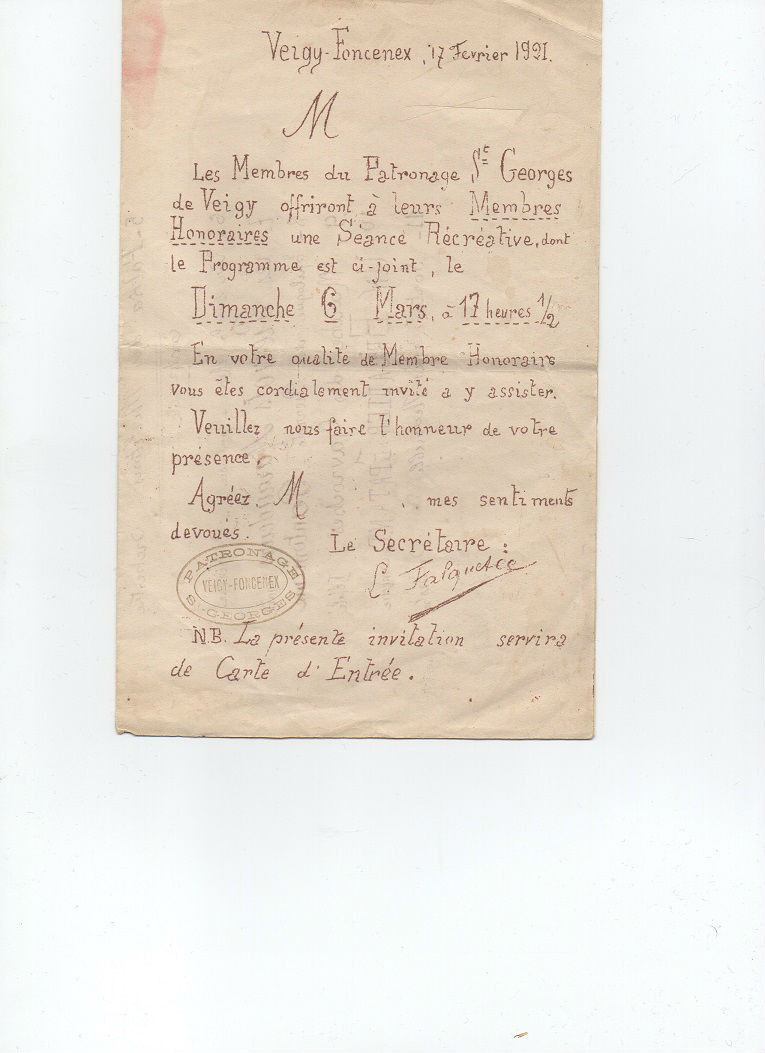 Veigy-Foncenex, 17 Fevrier 1921.
M
Les Membres du Patronage St Georges
de Veigy offriront à leurs Membres
Honoraires une Séance Récréative, dont
le Programme est ci-joint, le
Dimanche 6 Mars, à 17 heures 1/2
En votre qualité de Membre Honoraire
vous êtes cordialement invité a y assister.
Veuillez nous faire l'honneur de votre
présence.
Agréez M , mes sentiments
devoués.
Le Secrétaire :
PATRONAGE
VEIGY-FONCENEX
St GEORGES
N.B. La présente invitation servira
de Carte d'Entrée.